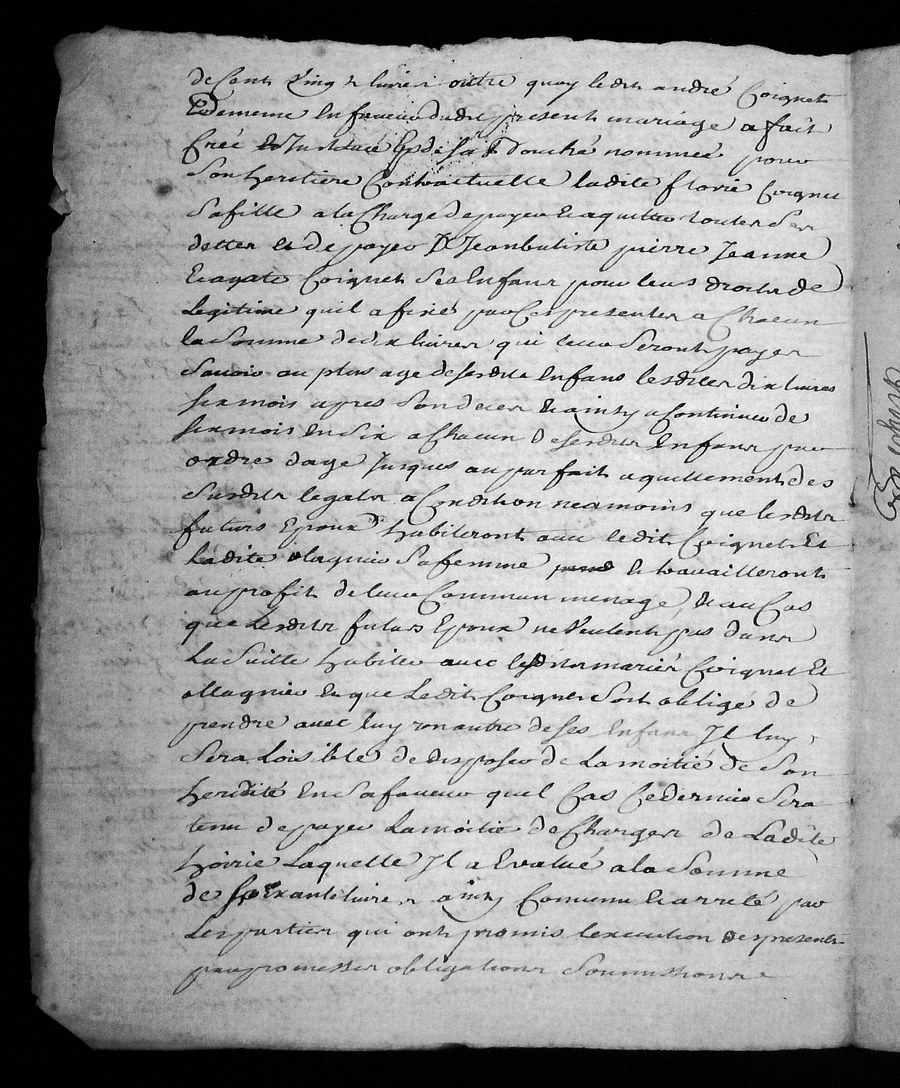 de Cent Cinq.te livres outre quoy ledit andré Coignet
de meme En faveur dudit present mariage a fait
Créé et Institué Et de sa Bouche nommée pour
Son heretiere Contractuelle ladite florie Coignet
Sa fille a la Charge de payer Et aquitter toutes Ses
dettes Et de payer a Jean batiste pierre Jeanne
Et agate Coignet Ses Enfans pour leurs droits de
Legitime quil a fixés par Ces presentes a Chacun
la Somme de dix livres qui leur Seront payes
Savoir au plus agé de Sesdits Enfans lesdites dix livres
Six mois apres Son deces Et ainsy a Continuer de
Six mois En Six a Chacun de Sesdits Enfans par
ordre dage Jusques au parfait aquittement des
Susdits legats a Condition neamoins que lesdits
futurs Epoux habiteront avec ledit Coignet Et
Ladite Magnier Sa femme Et travailleront
au profit de leur Commun menage, Et au Cas
que Lesdits futurs Epoux ne Veulent pas dans
La Suitte habiter avec lesdits mariés Coignet Et
Magnier Et que Ledit Coignet Soit obligé de
prendre avec luy un autre de Ses Enfans Il luy
Sera Loisible de disposer de La moitié de Son
heridité En Sa faveur quel Cas Ce dernier Sera
tenu de payer La moitié de Charges de Ladite
hoirie Laquelle Il a Evalué a la Somme
de Soixante livres ainsy Convenu Et arreté par
Les parties qui ont promis lexecution des presentes
par promesses obligations Soumissions